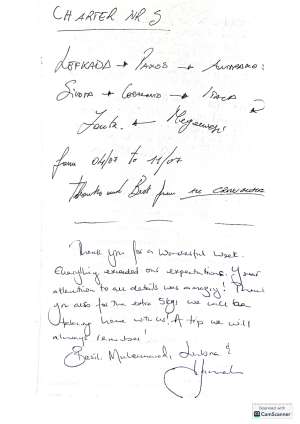 CHARTER NR. 5
LEFKADA → PAXOS →
SIVOTA → → ITACA
→
from 04/07 to 11/07
Thanks and Best from
Thank you for a wonderful week.
Everything exceeded our expectations. Your
attention to all details was amazing! Thank
you also for the extra 5kgs we will be
taking home with us! A trip we will
always remember!
Basil, Muhammad, &
Scanned with
CamScanner